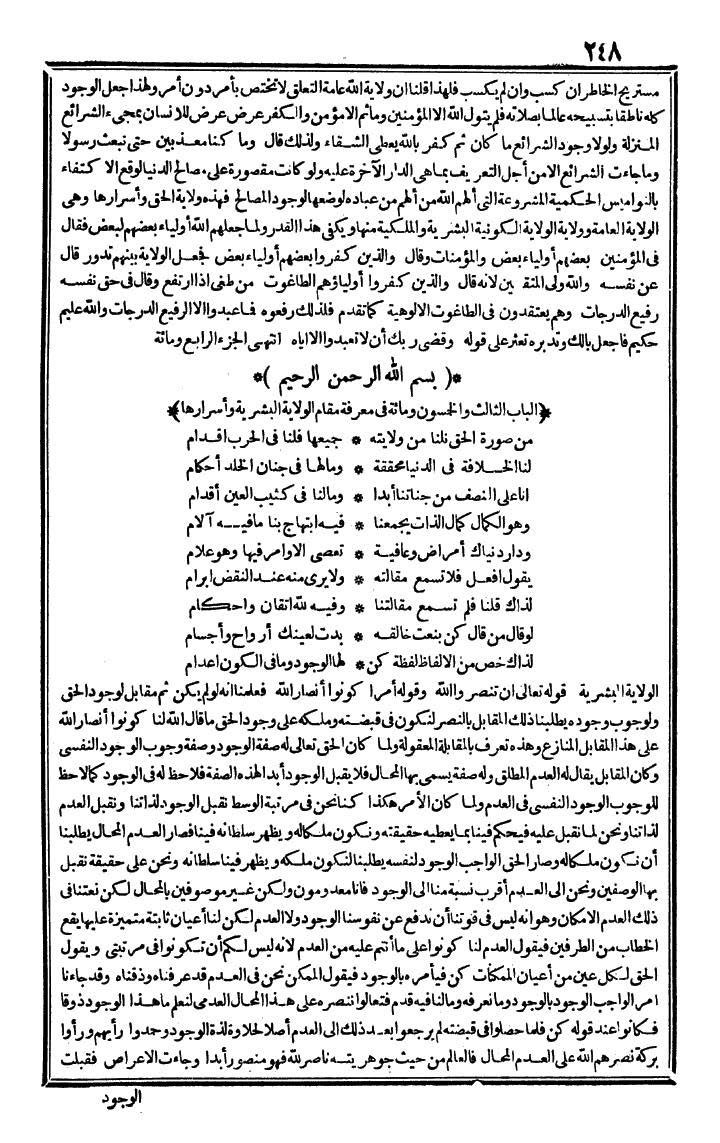 ٢٤٨
مستريح الخاطر ان كسب وان لم يكسب فلهذا قلنا ان ولاية الله عامة التعلق لا تختص بأمر دون أمر ولهذا جعل الوجود
كله ناطقا بتسبيحه عالما بصلاته فلم يتول الله الا المؤمنين وماثم الا مؤمن والكفر عرض عرض للانسان بمجيء الشرائع
المنزلة ولولا وجود الشرائع ما كان ثم كفر بالله يعطى الشقاء ولذلك قال وما كنا معذبين حتى نبعث رسولا
وما جاءت الشرائع الا من أجل التعريف بما هى الدار الآخرة عليه ولو كانت مقصورة على مصالح الدنيا لوقع الاكتفاء
بالنواميس الحكمية المشروعة التى ألهم الله من ألهم من عباده لوضعها لوجود المصالح فهذه ولاية الحق وأسرارها وهى
الولاية العامة وولاية الولاية الكونية البشرية والملكية منها ويكفى هذا القدر ولما جعلهم الله أولياء بعضهم لبعض فقال
فى المؤمنين بعضهم أولياء بعض والمؤمنات وقال والذين كفروا بعضهم أولياء بعض فجعل الولاية بينهم تدور قال
عن نفسه والله ولى المتقين لانه قال والذين كفروا أولياؤهم الطاغوت من طغى اذا ارتفع وقال فى حق نفسه
رفيع الدرجات وهم يعتقدون فى الطاغوت الالوهية كما تقدم فلذلك رفعوه فاعبدوا الا الرفيع الدرجات والله عليم
حكيم فاجعل بالك وتدبره تعثر على قوله وقضى ربك أن لا تعبدوا الا اياه انتهى الجزء الرابع ومائة
*( بسم الله الرحمن الرحيم )*
﴿الباب الثالث والخمسون ومائة فى معرفة مقام الولاية البشرية وأسرارها﴾
من صورة الحق نلنا من ولايته * جميعها فلنا فى الحرب اقدام
لنا الخلافة فى الدنيا محققة * ومالها فى جنان الخلد أحكام
انا على النصف من جناتنا أبدا * ومالنا فى كثيب العين أقدام
وهو الكمال كمال الذات يجمعنا * فيه ابتهاج بنا مافيه آلام
ودار دنياك أمراض وعافية * تعصى الاوامر فيها وهو علام
يقول افعل فلا تسمع مقالته * ولا يرى منه عند النقض ابرام
لذاك قلنا فلم تسمع مقالتنا * وفيه لله اتقان واحكام
لو قال من قال كن بنعت خالقه * بدت لعينك أرواح وأجسام
لذاك خص من الالفاظ لفظة كن * لها الوجود وما فى الكون اعدام
الولاية البشرية قوله تعالى ان تنصروا الله وقوله أمرا كونوا أنصار الله فعلمنا انه لو لم يكن ثم مقابل لوجود الحق
ولوجوب وجوده يطلبنا ذلك المقابل بالنصر لنكون فى قبضته وملكه على وجود الحق ما قال الله لنا كونوا أنصار الله
على هذا المقابل المنازع وهذه تعرف بالمقابلة المعقولة ولما كان الحق تعالى له صفة الوجود وصفة وجوب الوجود النفسى
وكان المقابل يقال له العدم المطلق وله صفة يسمى بها المحال فلا يقبل الوجود أبدا لهذه الصفة فلا حظ له فى الوجود كما لاحظ
للوجوب الوجود النفسى فى العدم ولما كان الأمر هكذا كنا نحن فى مرتبة الوسط نقبل الوجود لذاتنا ونقبل العدم
لذاتنا ونحن لما نقبل عليه فيحكم فينا بما يعطيه حقيقته ونكون ملكا له ويظهر سلطانه فينا فصار العدم المحال يطلبنا
أن نكون ملكا له وصار الحق الواجب الوجود لنفسه يطلبنا لنكون ملكه ويظهر فينا سلطانه ونحن على حقيقة نقبل
بها الوصفين ونحن الى العدم أقرب نسبة منا الى الوجود فانا معدومون ولكن غير موصوفين بالمحال لكن نعتنا فى
ذلك العدم الامكان وهو انه ليس فى قوتنا أن ندفع عن نفوسنا الوجود ولا العدم لكن لنا أعيان ثابتة متميزة عليها يقع
الخطاب من الطرفين فيقول العدم لنا كونوا على ما أنتم عليه من العدم لانه ليس لكم أن تكونوا فى مرتبتى ويقول
الحق لكل عين من أعيان الممكنات كن فيأمره بالوجود فيقول الممكن نحن فى العدم قد عرفناه وذقناه وقد جاءنا
امر الواجب الوجود بالوجود وما نعرفه ومالنا فيه قدم فتعالوا ننصره على هذا المحال العدمى لنعلم ما هذا الوجود ذوقا
فكانوا عند قوله كن فلما حصلوا فى قبضته لم يرجعوا بعد ذلك الى العدم أصلا لحلاوة لذة الوجود وحمدوا رأيهم ورأوا
بركة نصرهم الله على العدم المحال فالعالم من حيث جوهريته ناصر لله فهو منصور أبدا وجاءت الاعراض فقبلت
الوجود